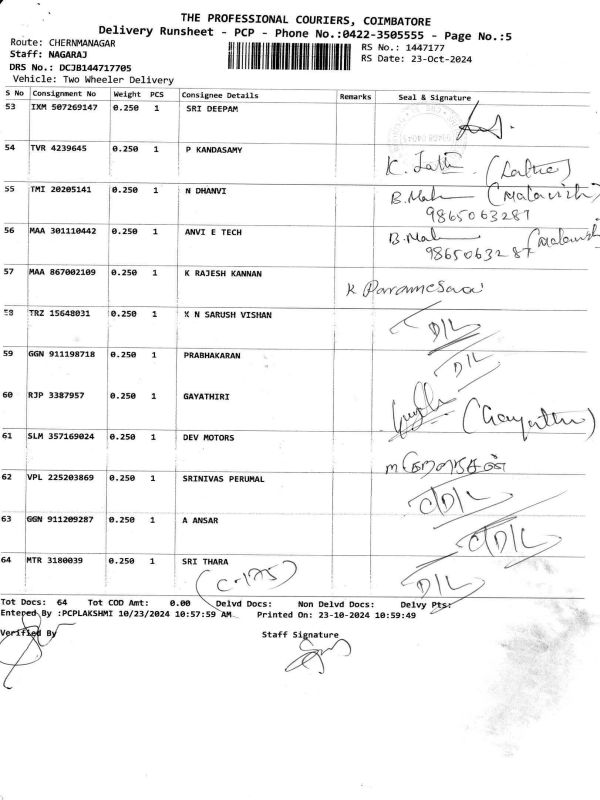 THE PROFESSIONAL COURIERS, COIMBATORE
Delivery Runsheet - PCP - Phone No.:0422-3505555 - Page No.:5
Route: CHERNMANAGAR RS No.: 1447177
Staff: NAGARAJ RS Date: 23-Oct-2024
DRS No.: DCJB144717705
Vehicle: Two Wheeler Delivery
S No Consignment No Weight PCS Consignee Details Remarks Seal & Signature
53 IXM 507269147 0.250 1 SRI DEEPAM
54 TVR 4239645 0.250 1 P KANDASAMY
55 TMI 20205141 0.250 1 N DHANVI B.
9865063287
56 MAA 301110442 0.250 1 ANVI E TECH B.
9865063287
57 MAA 867002109 0.250 1 K RAJESH KANNAN
58 TRZ 15648031 0.250 1 K N SARUSH VISHAN D/L
59 GGN 911198718 0.250 1 PRABHAKARAN D/L
60 RJP 3387957 0.250 1 GAYATHIRI
61 SLM 357169024 0.250 1 DEV MOTORS
62 VPL 225203869 0.250 1 SRINIVAS PERUMAL C/D/L
63 GGN 911209287 0.250 1 A ANSAR C/D/L
64 MTR 3180039 0.250 1 SRI THARA D/L
(C-175)
Tot Docs: 64 Tot COD Amt: 0.00 Delvd Docs: Non Delvd Docs: Delvy Pts:
Entered By :PCPLAKSHMI 10/23/2024 10:57:59 AM Printed On: 23-10-2024 10:59:49
Verified By Staff Signature